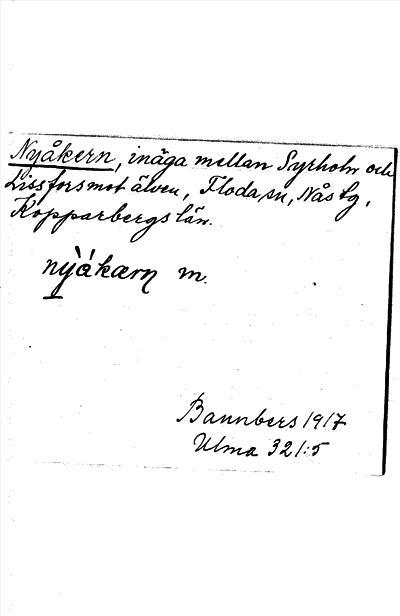 Nyåkern, inäga mellan Syrholn och
Lissfors mot älven, Floda sn, Nås tg,
Kopparbergs län.
nỳákærn m.
Bannbers 1917
Ulma 321:5